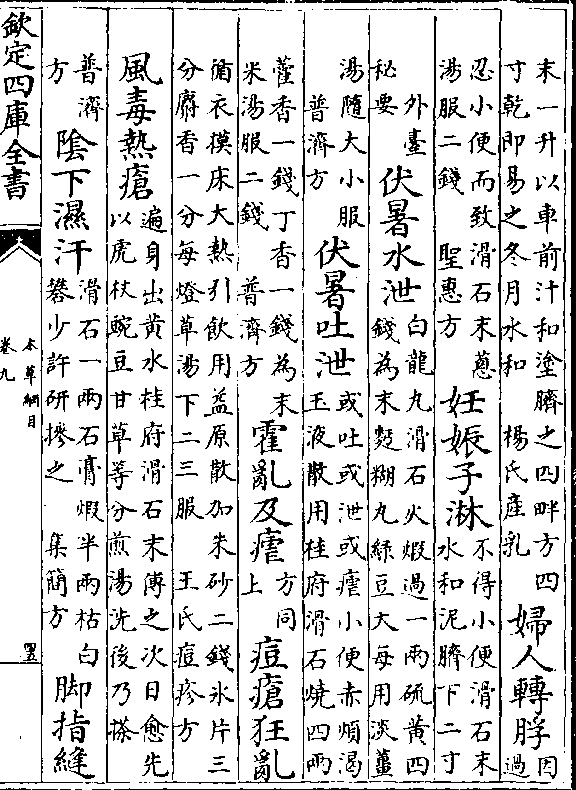 末一升以車前汁和塗臍之四畔方四
寸乾即易之冬月水和 楊氏産乳
婦人轉脬
因
過
忍小便而致滑石末葱
湯服二錢 聖惠方
妊娠子淋
不得小便滑石末
水和泥臍下二寸
外臺
秘要
伏暑水泄
白龍丸滑石火煅過一兩硫黄四
錢為末麫糊丸綠豆大每用淡薑
湯隨大小服
普濟方
伏暑吐泄
或吐或泄或瘧小便赤煩渴
玉液散用桂府滑石燒四兩
藿香一錢丁香一錢為末
米湯服二錢 普濟方
霍亂及瘧
方同
上
痘瘡狂亂
循衣摸床大熱引飲用益原散加朱砂二錢氷片三
分麝香一分每燈草湯下二三服 王氏痘疹方
風毒熱瘡
遍身出黄水桂府滑石末傅之次日愈先
以虎杖豌豆甘草等分煎湯洗後乃搽
普濟
方
陰下濕汗
滑石一兩石膏煅半兩枯白
礬少許研摻之 集簡方
脚指縫
欽定四庫全書
本草綱目
卷九
四五